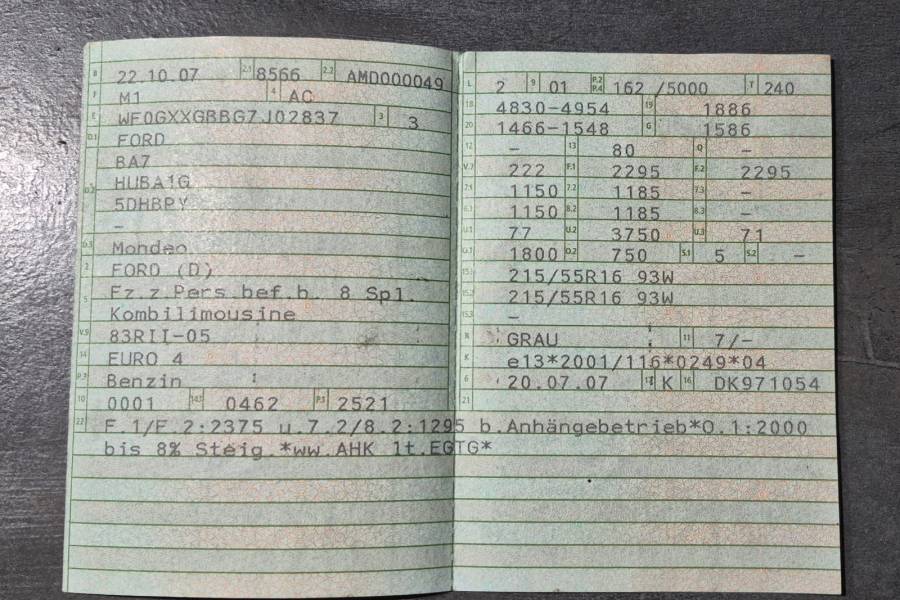 B 22.10.07 2.1 8566 2.2 AMD000049
J M1 4 AC
E WF0GXXGBBG7J02837 3 3
D.1 FORD
BA7
D.2 HUBA1G
5DHBPY
-
D.3 Mondeo
2 FORD (D)
5 Fz.z.Pers.bef.b. 8 Spl.
Kombilimousine
V.9 83RII-05
14 EURO 4
P.3 Benzin
10 0001 14.1 0462 P.1 2521
22 F.1/F.2:2375 u.7.2/8.2:1295 b.Anhängebetrieb*O.1:2000
bis 8% Steig.*ww.AHK lt.EGTG*
L 2 9 01 P.2 P.4 162 /5000 T 240
18 4830-4954 19 1886
20 1466-1548 G 1586
12 - 13 80 Q -
V.7 222 F.1 2295 F.2 2295
7.1 1150 7.2 1185 7.3 -
8.1 1150 8.2 1185 8.3 -
U.1 77 U.2 3750 U.3 71
O.1 1800 O.2 750 S.1 5 S.2 -
15.1 215/55R16 93W
15.2 215/55R16 93W
15.3 -
R GRAU 11 7/-
K e13*2001/116*0249*04
6 20.07.07 17 K 16 DK971054
21